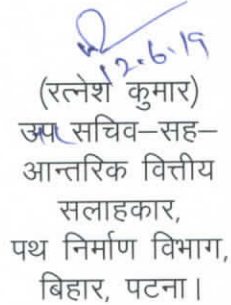 12.6.19
(रत्नेश कुमार)
उप सचिव–सह–
आन्तरिक वित्तीय
सलाहकार,
पथ निर्माण विभाग,
बिहार, पटना।